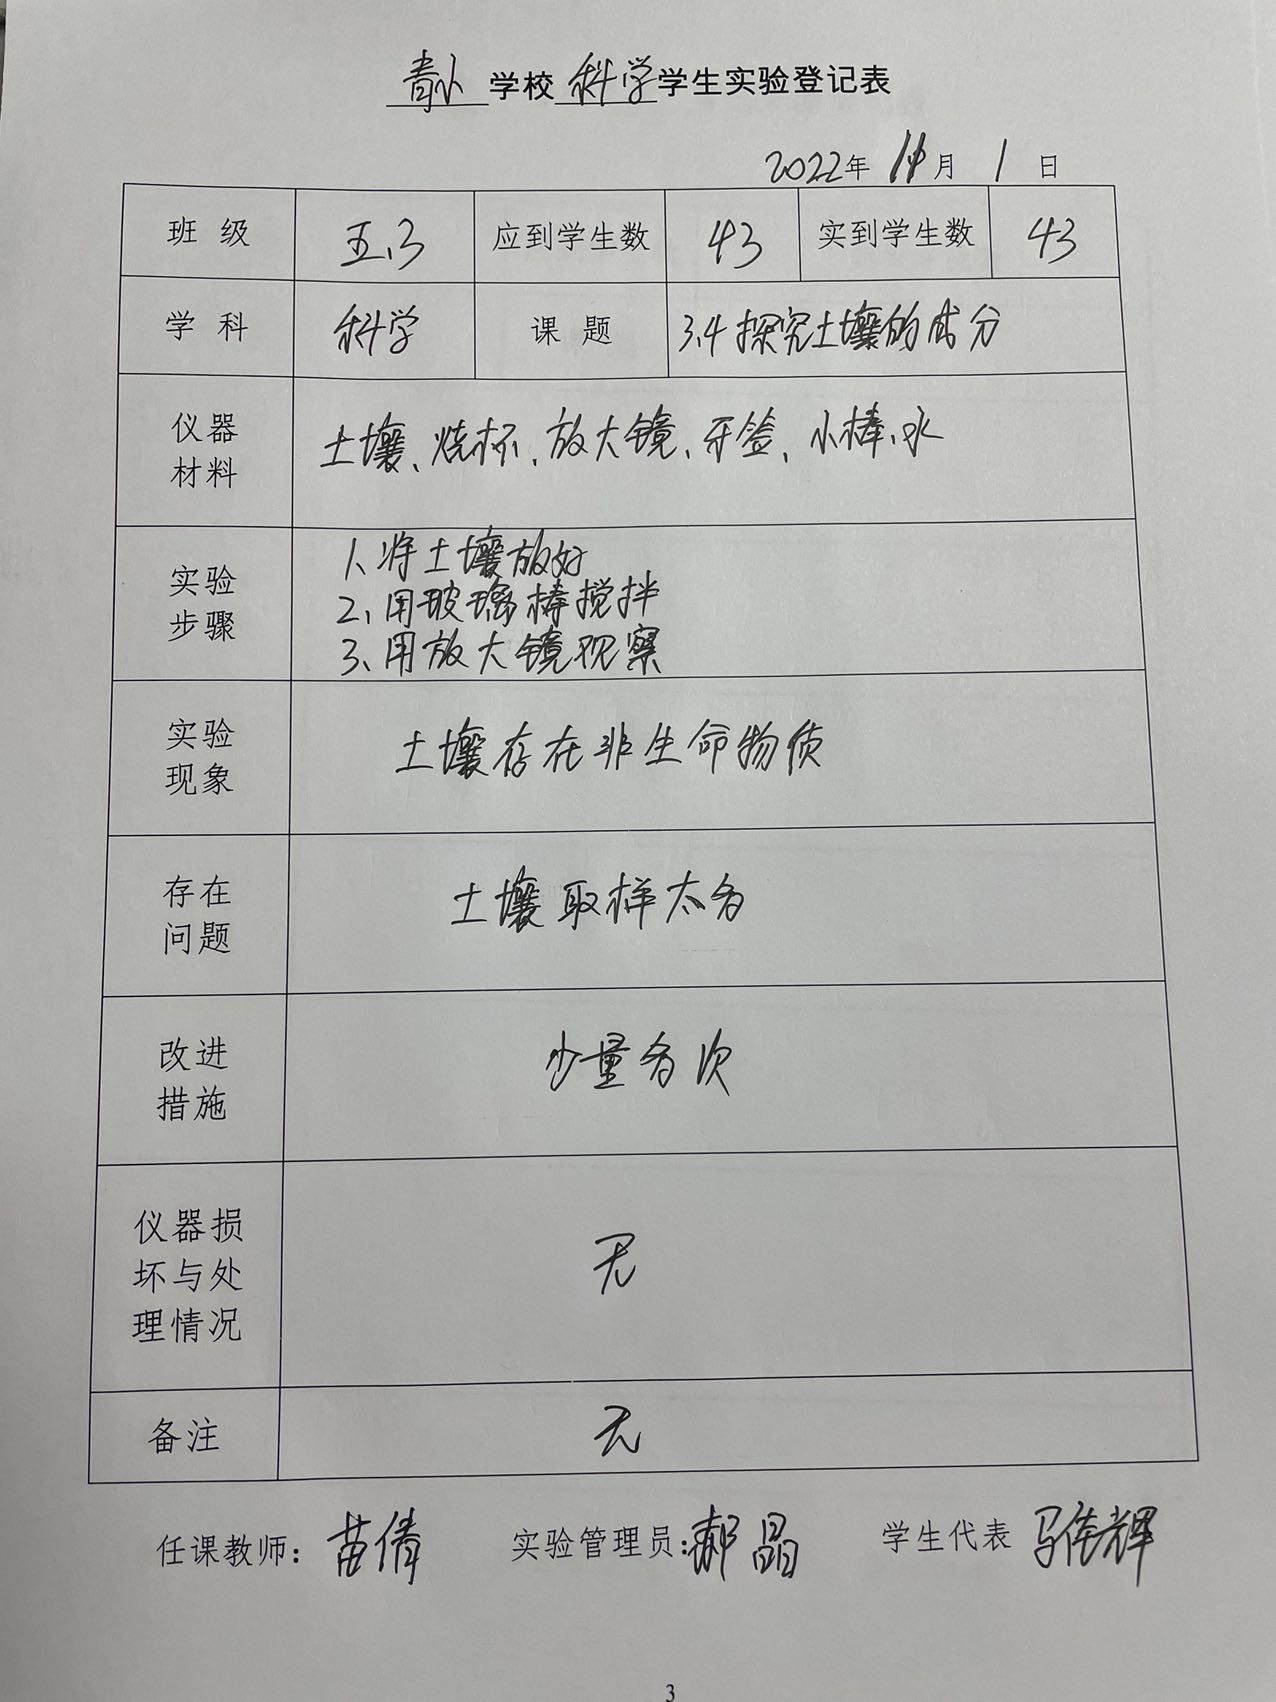 青小学校科学学生实验登记表
2022年11月1日
班级 五.3 应到学生数 43 实到学生数 43
学科 科学 课题 3.4探究土壤的成分
仪器
材料
土壤、烧杯、放大镜、牙签、小棒、水
实验
步骤
1、将土壤放好
2、用玻璃棒搅拌
3、用放大镜观察
实验
现象
土壤存在非生命物质
存在
问题
土壤取样太多
改进
措施
少量多次
仪器损
坏与处
理情况
无
备注 无
任课教师：苗倩 实验管理员：郝晶 学生代表 马佳辉
3